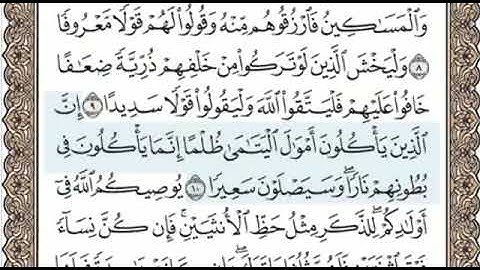 وَالْمَسَاكِينُ فَارْزُقُوهُم مِّنْهُ وَقُولُوا لَهُمْ قَوْلًا مَّعْرُوفًا
٨ وَلْيَخْشَ الَّذِينَ لَوْ تَرَكُوا مِنْ خَلْفِهِمْ ذُرِّيَّةً ضِعَافًا
خَافُوا عَلَيْهِمْ فَلْيَتَّقُوا اللَّهَ وَلْيَقُولُوا قَوْلًا سَدِيدًا ٩ إِنَّ
الَّذِينَ يَأْكُلُونَ أَمْوَالَ الْيَتَامَىٰ ظُلْمًا إِنَّمَا يَأْكُلُونَ فِي
بُطُونِهِمْ نَارًا ۖ وَسَيَصْلَوْنَ سَعِيرًا ١٠ يُوصِيكُمُ اللَّهُ فِي
أَوْلَادِكُمْ ۖ لِلذَّكَرِ مِثْلُ حَظِّ الْأُنثَيَيْنِ ۚ فَإِن كُنَّ نِسَاءً